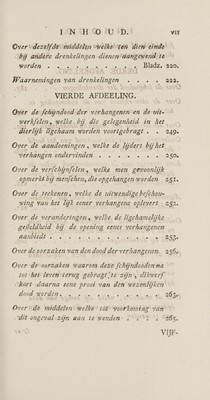 INHOUD. VII
Over dezelfde middelen welke ten dien einde
bij andere drenkelingen dienen aangewend te
worden . Bladz. 220.
Waarnemingen van drenkelingen . . . . 222.
VIERDE AFDEELING.
Over de schijndood der verhangenen en de uit-
werkselen, welke bij die gelegenheid in het
dierlijk ligchaam worden voortgebragt . 249.
Over de aandoeningen, welke de lijders bij het
verhangen ondervinden . . . . . . 250.
Over de verschijnselen, welke men gewoonlijk
opmerkt bij menschen, die opgehangen worden 251.
Over de teekenen, welke de uitwendige beschou-
wing van het lijk eener verhangene oplevert 252.
Over de veranderingen, welke de ligchamelijke
gesteldheid bij de opening eenes verhangenen
aanbiedt . . . . . . . . . 253.
Over de oorzaken van den dood der verhangenen. 256.
Over de oorzaken waarom deze schijndooden na
tot het leven terug gebragt te zijn, dikwerf
kort daarna eene prooi van den wezenlijken
dood worden . . . . . . . . 263.
Over de middelen welke tot voorkoming van
dit ongeval zijn aan te wenden . . . . 265.
VIJF-